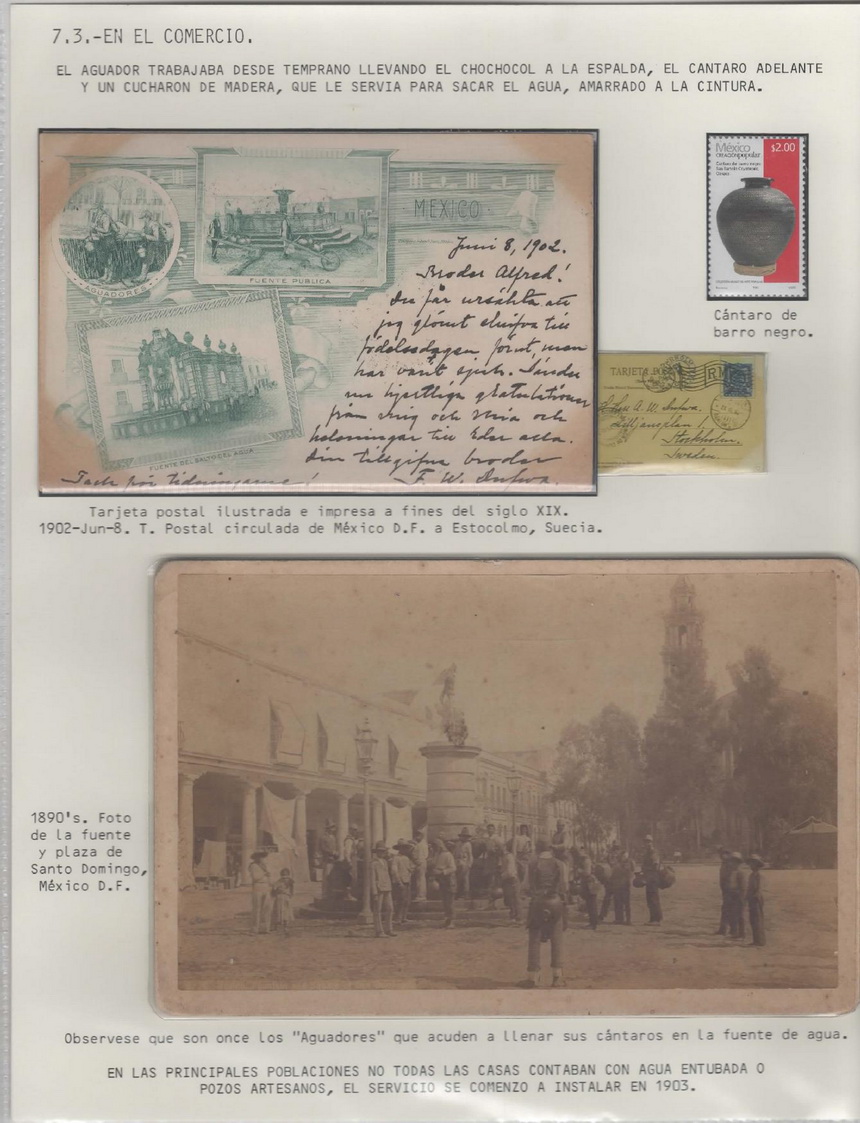 7.3.-EN EL COMERCIO.
EL AGUADOR TRABAJABA DESDE TEMPRANO LLEVANDO EL CHOCHOCOL A LA ESPALDA, EL CANTARO ADELANTE
Y UN CUCHARON DE MADERA, QUE LE SERVIA PARA SACAR EL AGUA, AMARRADO A LA CINTURA.
MEXICO
AGUADORES
FUENTE PUBLICA
FUENTE DEL SALTO EL AGUA
Juni 8, 1902.
Broder Alfred!
Du får ursäkta att
jag glömt skrifva till
födelsedagen förut, men
har varit sjuk. Sänder
nu hjertliga gratulationer
från mig och Mia och
helsningar till Eder alla.
Din tillgifne broder
F. W.
Tack för tidningarne!
México
creación popular
$2.00
Cántaro de barro negro
Cántaro de
barro negro.
TARJETA
A. W.
Lilljansplan 1
Stockholm.
Sweden.
Tarjeta postal ilustrada e impresa a fines del siglo XIX.
1902-Jun-8. T. Postal circulada de México D.F. a Estocolmo, Suecia.
1890's. Foto
de la fuente
y plaza de
Santo Domingo,
México D.F.
Observese que son once los "Aguadores" que acuden a llenar sus cántaros en la fuente de agua.
EN LAS PRINCIPALES POBLACIONES NO TODAS LAS CASAS CONTABAN CON AGUA ENTUBADA O
POZOS ARTESANOS, EL SERVICIO SE COMENZO A INSTALAR EN 1903.